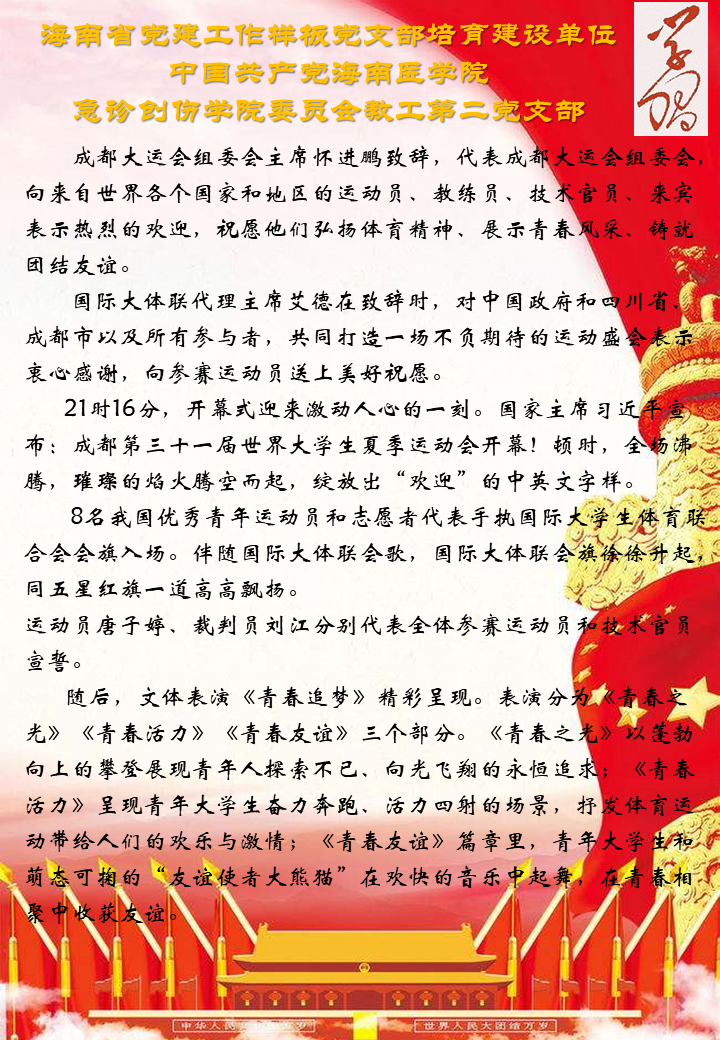 海南省党建工作样板党支部培育建设单位
中国共产党海南医学院
急诊创伤学院委员会教工第二党支部
学习
成都大运会组委会主席怀进鹏致辞，代表成都大运会组委会，
向来自世界各个国家和地区的运动员、教练员、技术官员、来宾
表示热烈的欢迎，祝愿他们弘扬体育精神、展示青春风采、铸就
团结友谊。
国际大体联代理主席艾德在致辞时，对中国政府和四川省、
成都市以及所有参与者，共同打造一场不负期待的运动盛会表示
衷心感谢，向参赛运动员送上美好祝愿。
21时16分，开幕式迎来激动人心的一刻。国家主席习近平宣
布：成都第三十一届世界大学生夏季运动会开幕！顿时，全场沸
腾，璀璨的焰火腾空而起，绽放出“欢迎”的中英文字样。
8名我国优秀青年运动员和志愿者代表手执国际大学生体育联
合会会旗入场。伴随国际大体联会歌，国际大体联会旗徐徐升起，
同五星红旗一道高高飘扬。
运动员唐子婷、裁判员刘江分别代表全体参赛运动员和技术官员
宣誓。
随后，文体表演《青春追梦》精彩呈现。表演分为《青春之
光》《青春活力》《青春友谊》三个部分。《青春之光》以蓬勃
向上的攀登展现青年人探索不已、向光飞翔的永恒追求；《青春
活力》呈现青年大学生奋力奔跑、活力四射的场景，抒发体育运
动带给人们的欢乐与激情；《青春友谊》篇章里，青年大学生和
萌态可掬的“友谊使者大熊猫”在欢快的音乐中起舞，在青春相
聚中收获友谊。
中华人民共和国万岁
世界人民大团结万岁